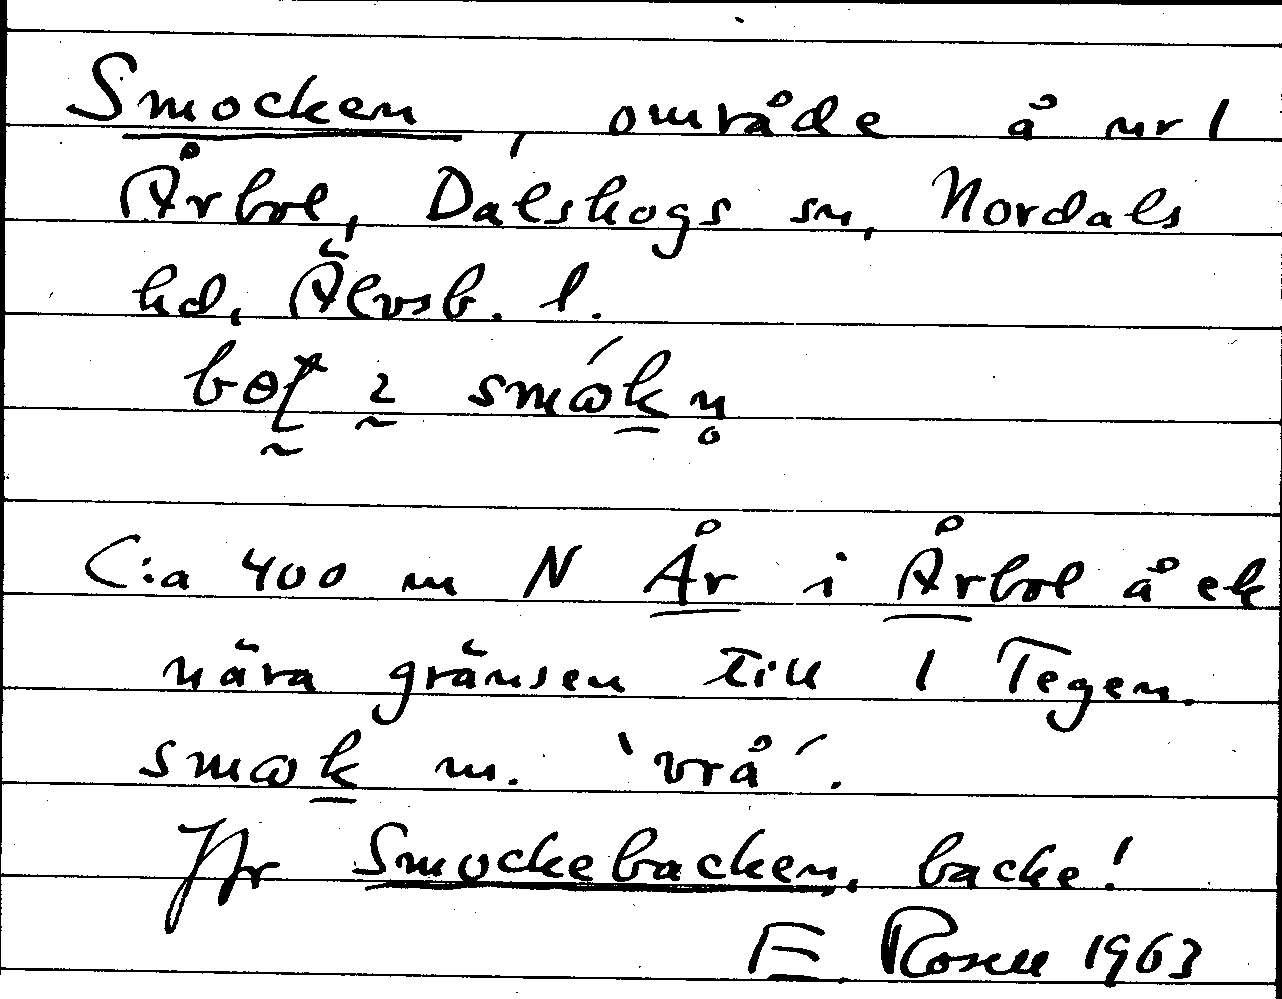 Smocken, område å nr 1
Årbol, Dalskogs sn, Nordals
hd, Älvsb. l.
C:a 400 m N År i Årbol å ek
nära gränsen till 1 Tegen.
smɷk m. 'vrå'.
Jfr Smockebacken, backe!
E. Rosell 1963